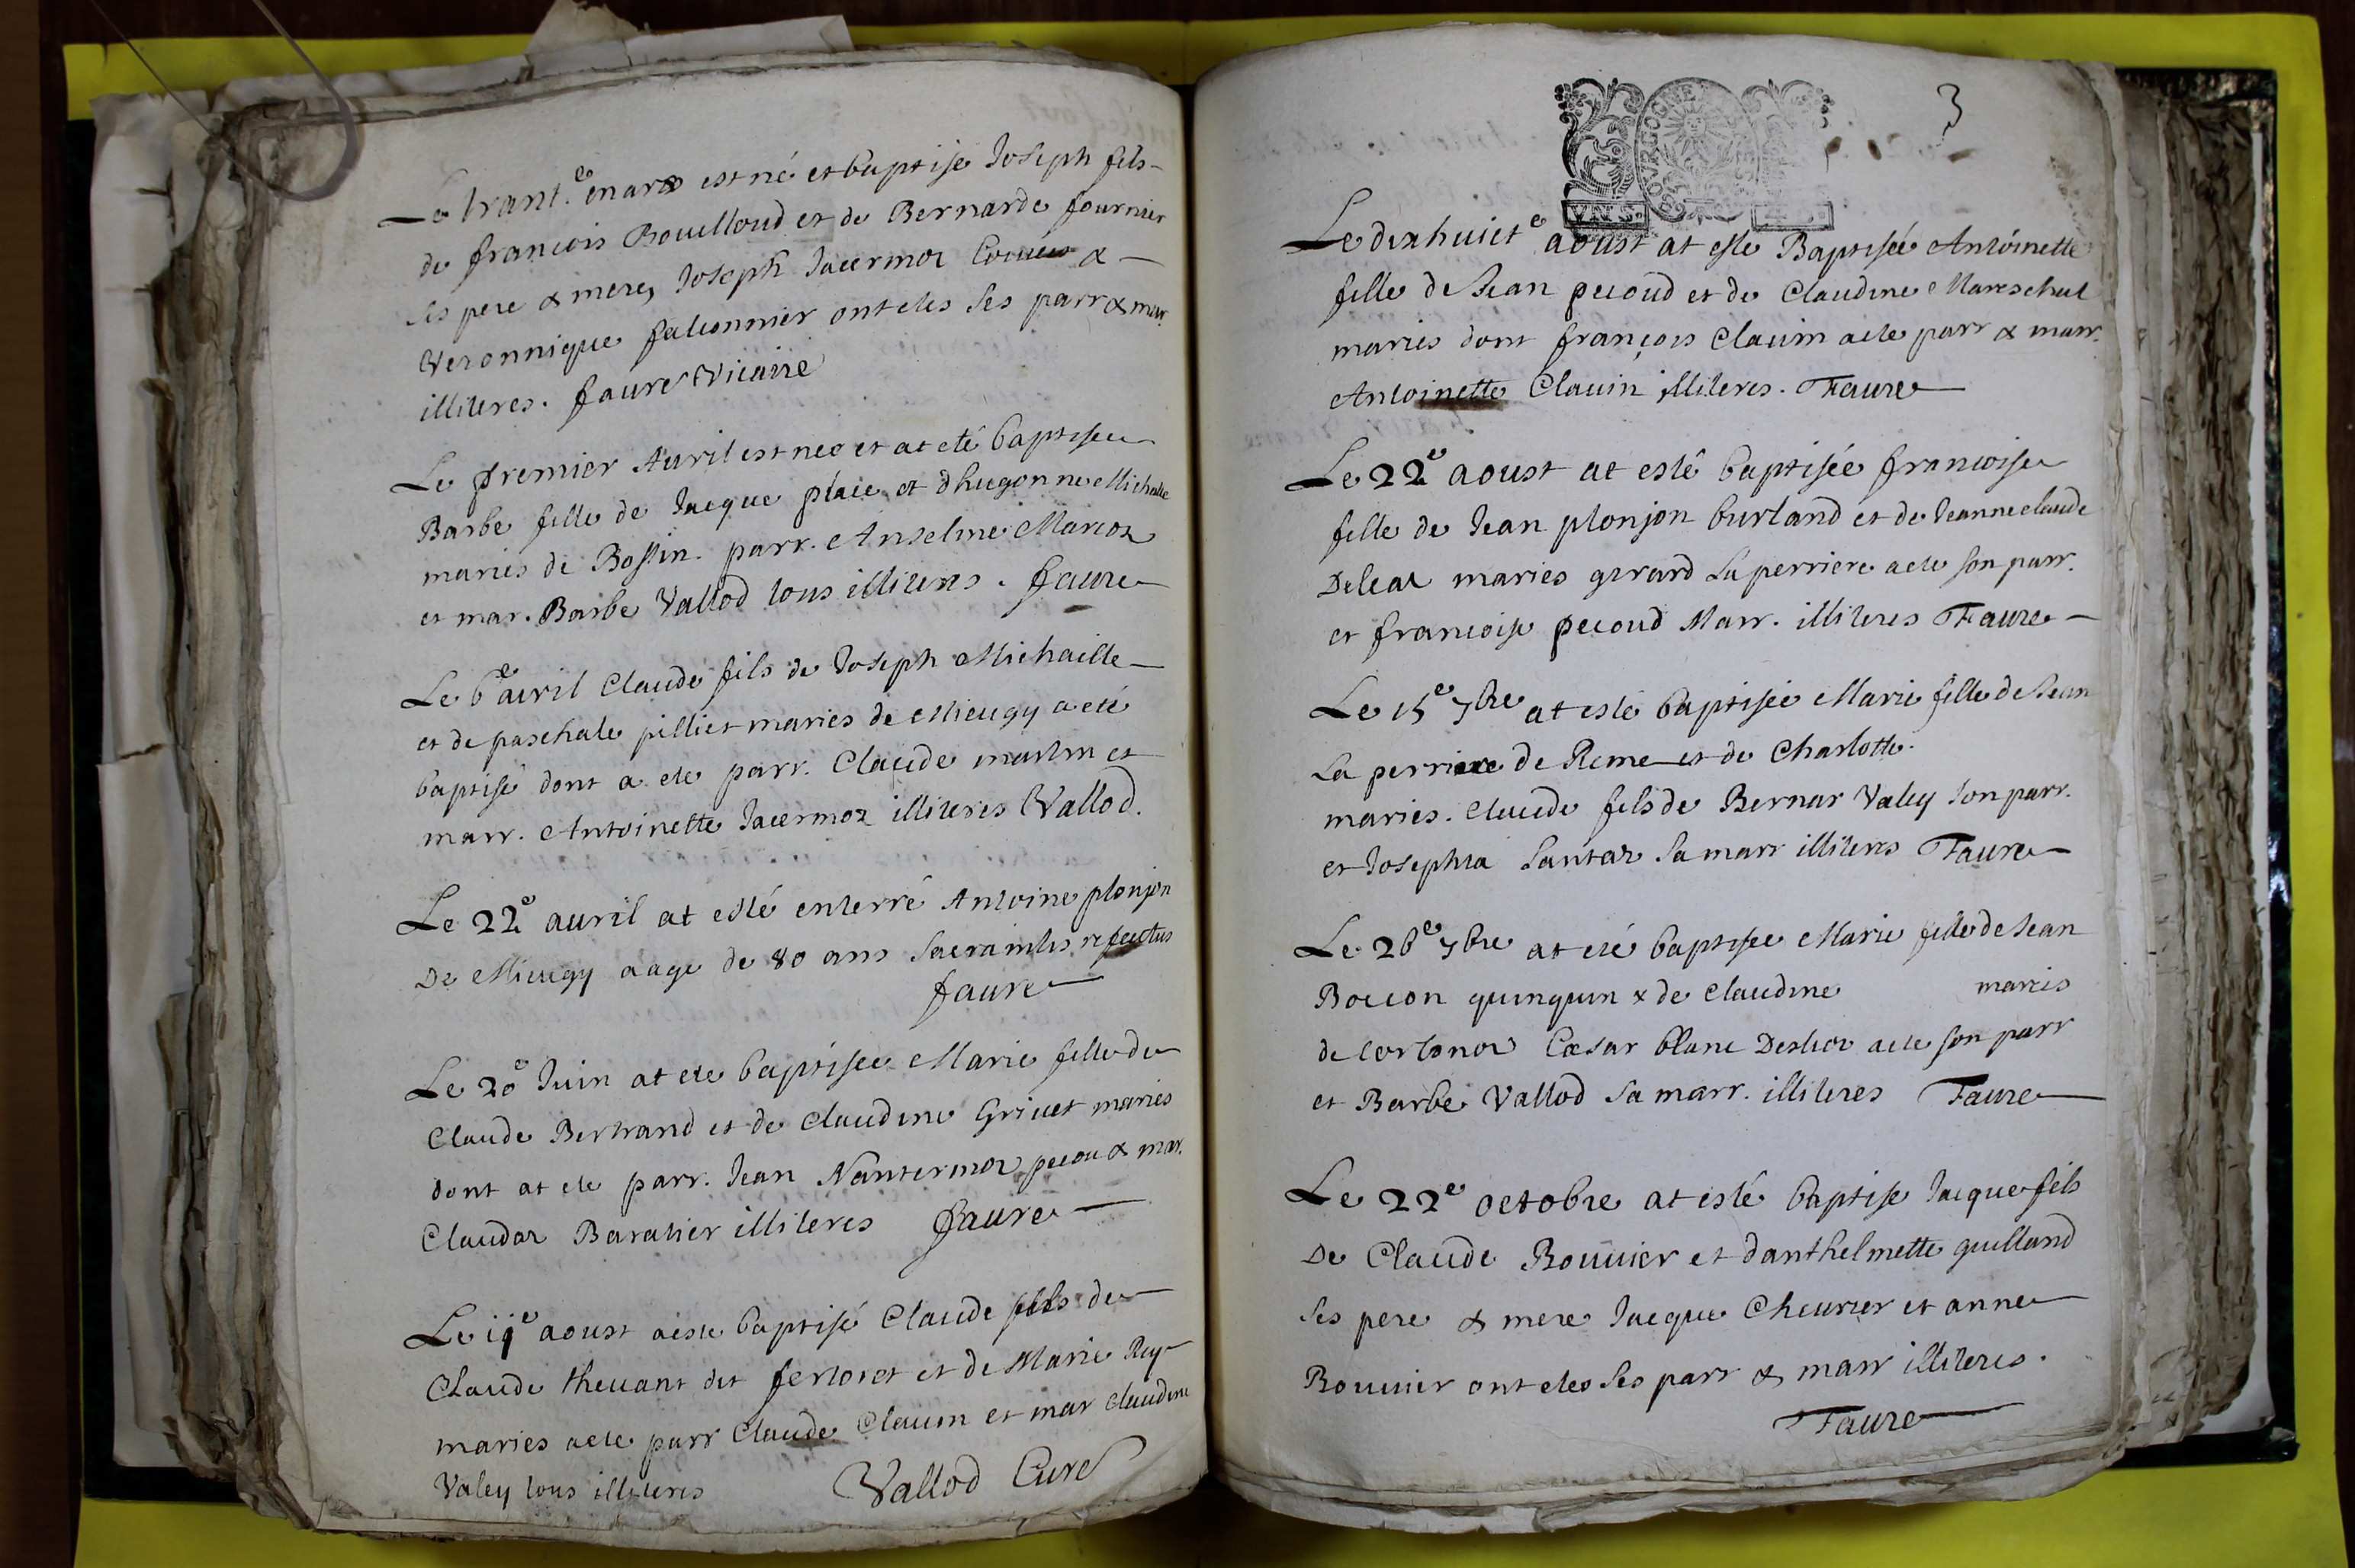 Le trant.e mars est né et baptise Joseph fils
de francois Bouilloud et de Bernarde fournier
ses pere & mere, Joseph Jacermoz &
Veronnique falconnier ont etes ses parr & mar.
illiteres. faure Vicaire
Le premier Auril est nee et at eté baptisee
Barbe fille de Jacque plaie et dhugonne Michalle
mariés de Bossin. parr. Anselme Marcoz
et mar. Barbe Vallod tous illiteres. faure
Le 6e avril Claude fils de Joseph Michaille
et de paschale pilliet maries de Mieugy a eté
baptisé dont a ete parr. Claude martin et
marr. Antoinette Jacermoz illiteres Vallod.
Le 22e auril at esté enterré Antoine plonjon
De Mieugy aage de 80 ans Sacramtis refectus
faure
Le 20e Juin at ete baptisee Marie fille de
Claude Bertrand et de Claudine Griuet maries
dont at ete parr. Jean Nantermoz pecou & mar.
Claudaz Baratier illiteres faure
Le 11e aoust a este baptisé Claude fils de
Claude theuant dit ferloret et de Marie Rey
maries a ete parr Claude Clauin et mar claudine
Valey tous illiteres Vallod Curé
3
BOURGOGNE
VN S.
Le dixhuict e aoust at este Baptisée Antoinette
fille de Jean pecoud et de Claudine Mareschal
maries dont françois Clauin a ete parr & marr.
Antoinette Clauin illiteres. Faure
Le 22e aoust at esté baptisée francoise
fille de Jean plonjon burland et de Jeanne claude
Deleaz maries girard La perriere a ete son parr.
et francoise pecoud Marr. illiteres Faure
Le 15e 7bre at esté baptisée Marie fille de Jean
La perriere de Reme et de Charlotte.
maries. Claude fils de Bernar Valey son parr.
et Josephta Santaz sa marr illiteres Faure
Le 26e 7bre at eté baptisee Marie fille de Jean
Bocion quinquin & de Claudine maries
de Cortonoz Cæsar blanc Destior a ete son parr
et Barbe Vallod sa marr. illiteres Faure
Le 22e octobre at esté baptise Jacque fils
De Claude Bouuier et danthelmette guilland
ses pere & mere Jacque Cheurier et anne
Bouuier ont etes ses parr & marr illiteres.
Faure